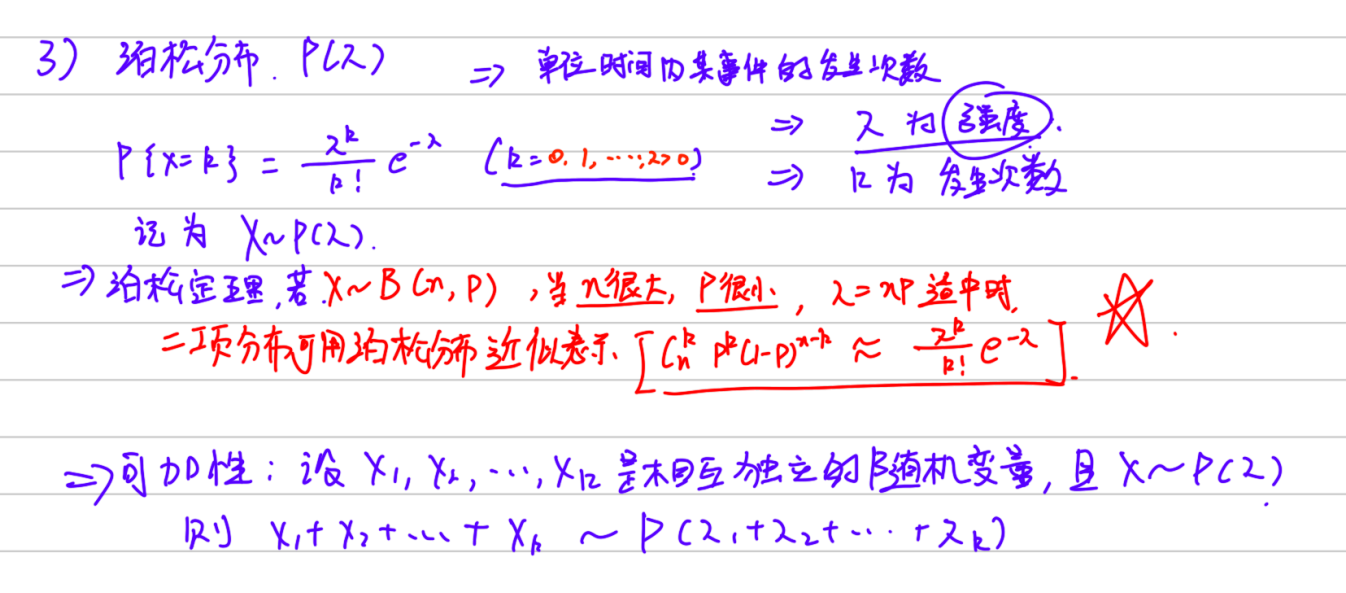 3) 泊松分布. P(λ) ⇒ 单位时间内某事件的发生次数
⇒ λ为强度.
P{X=k} = λ^k/k! e^{-λ} (k=0.1,⋯;λ>0) ⇒ k为发生次数
记为 X~P(λ).
⇒泊松定理,若.X~B(n,p),当n很大,P很小,λ=np适中时,
二项分布可用泊松分布近似表示、[C_n^k p^k(1-p)^{n-k} ≈ λ^k/k! e^{-λ}].
⇒可加性:设X₁,X₂,⋯,X_k是相互独立的随机变量,且X~P(λ)
则 X₁+X₂+⋯+X_k ~ P(λ₁+λ₂+⋯+λ_k)